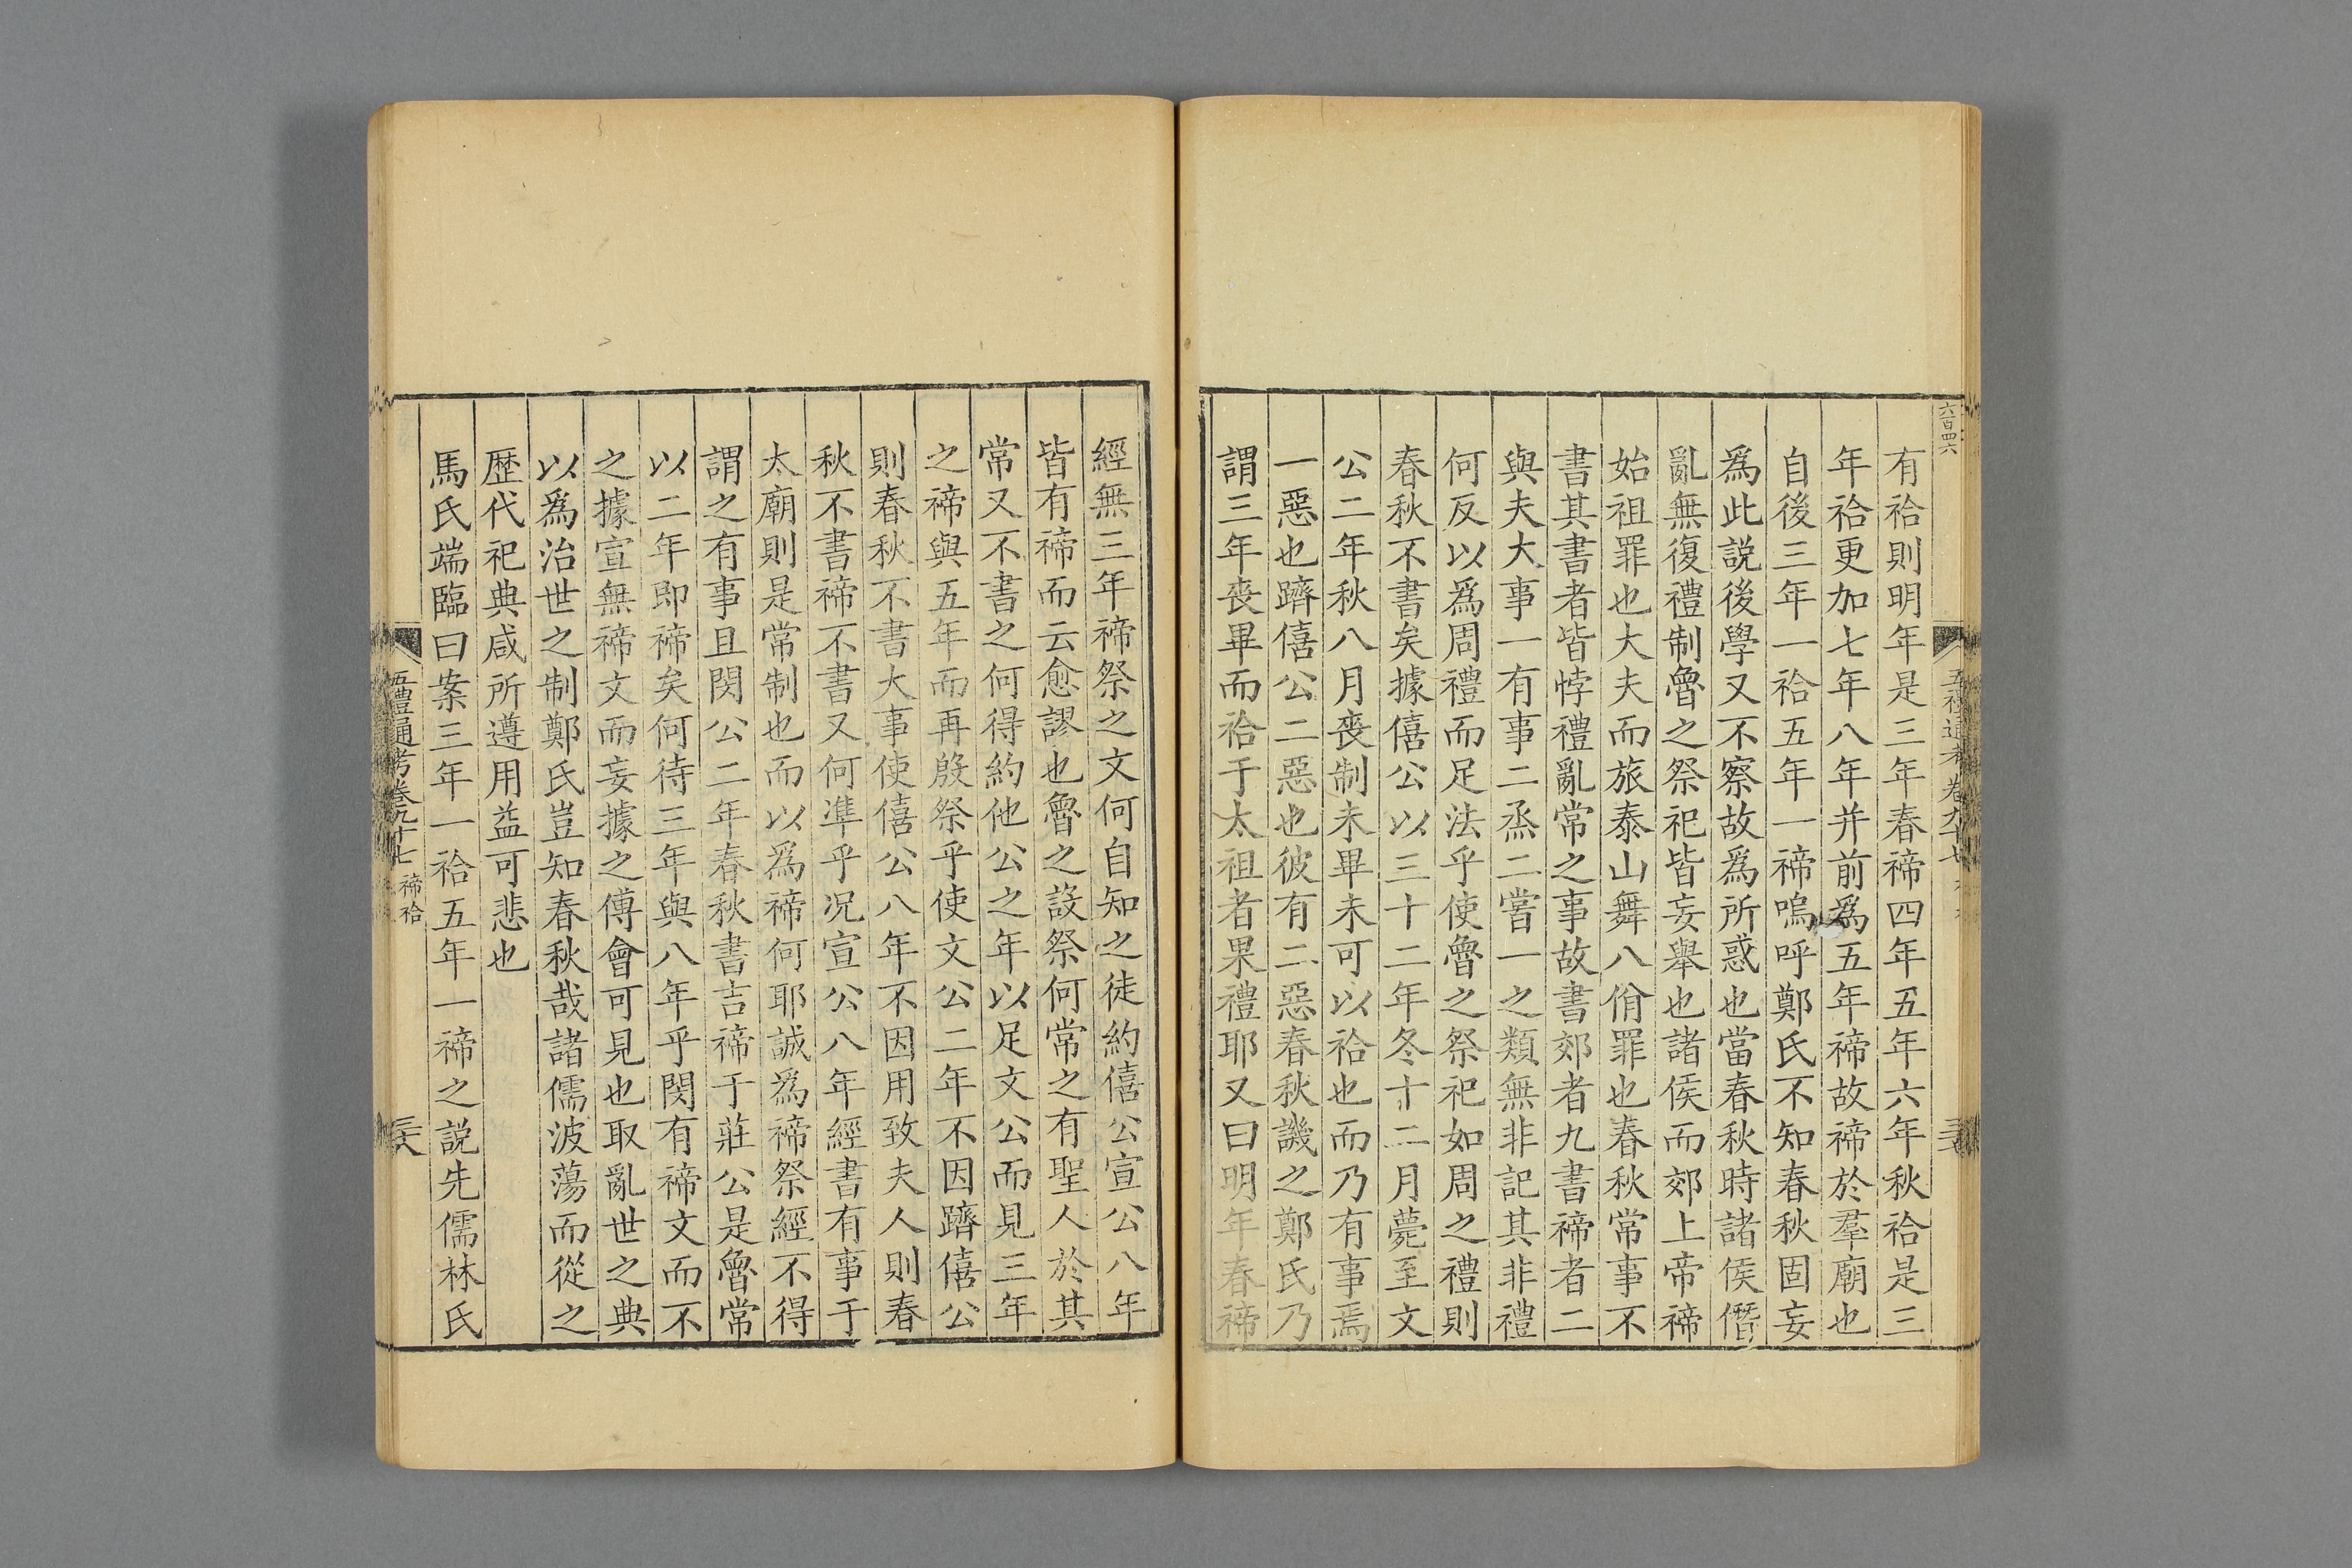 六百四六
有祫則明年是三年春禘四年五年六年秋祫是三
年祫更加七年八年并前為五年禘故禘於羣廟也
自後三年一祫五年一禘嗚呼鄭氏不知春秋固妄
爲此説後學又不察故爲所惑也當春秋時諸侯僭
亂無復禮制魯之祭祀皆妄舉也諸侯而郊上帝禘
始祖罪也大夫而旅泰山舞八佾罪也春秋常事不
書其書者皆悖禮亂常之事故書郊者九書禘者二
與夫大事一有事二烝二嘗一之類無非記其非禮
何反以爲周禮而足法乎使魯之祭祀如周之禮則
春秋不書矣據僖公以三十二年冬十二月薨至文
公二年秋八月喪制未畢未可以祫也而乃有事焉
一惡也躋僖公二惡也彼有二惡春秋譏之鄭氏乃
謂三年喪畢而祫于太祖者果禮耶又曰明年春禘
經無三年禘祭之文何自知之徒約僖公宣公八年
皆有禘而云愈謬也魯之設祭何常之有聖人於其
常又不書之何得約他公之年以足文公而見三年
之禘與五年而再殷祭乎使文公二年不因躋僖公
則春秋不書大事使僖公八年不因用致夫人則春
秋不書禘不書又何凖乎况宣公八年經書有事于
太廟則是常制也而以爲禘何耶誠爲禘祭經不得
謂之有事且閔公二年春秋書吉禘于莊公是魯常
以二年即禘矣何待三年與八年乎閔有禘文而不
之據宣無禘文而妄據之傅會可見也取亂世之典
以爲治世之制鄭氏豈知春秋哉諸儒波蕩而從之
歴代祀典咸所遵用益可悲也
馬氏端臨曰案三年一祫五年一禘之説先儒林氏
五禮通考卷九十七 禘祫